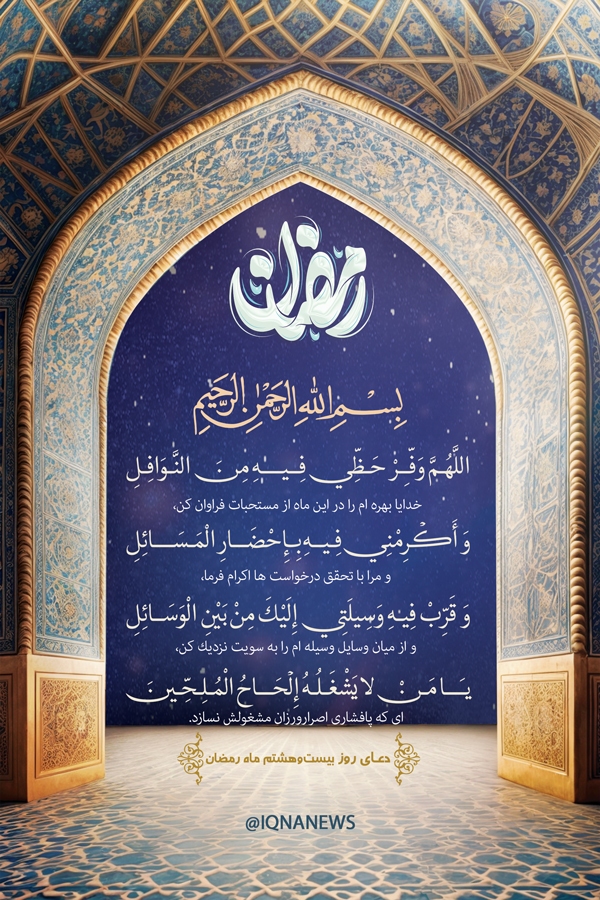 رمضان
بِسْمِ اللهِ الرَّحْمٰنِ الرَّحِيمِ
اللَّهُمَّ وَفِّرْ حَظِّي فِيهِ مِنَ النَّوَافِلِ
خدایا بهره ام را در این ماه از مستحبات فراوان کن،
وَ أَكْرِمْنِي فِيهِ بِإِحْضَارِ الْمَسَائِلِ
و مرا با تحقق درخواست ها اکرام فرما،
وَ قَرِّبْ فِيهِ وَسِيلَتِي إِلَيْكَ مِنْ بَيْنِ الْوَسَائِلِ
و از میان وسایل وسیله ام را به سویت نزدیک کن،
يَا مَنْ لا يَشْغَلُهُ إِلْحَاحُ الْمُلِحِّينَ
ای که پافشاری اصرارورزان مشغولش نسازد.
دعای روز بیست‌وهشتم ماه رمضان
@IQNANEWS